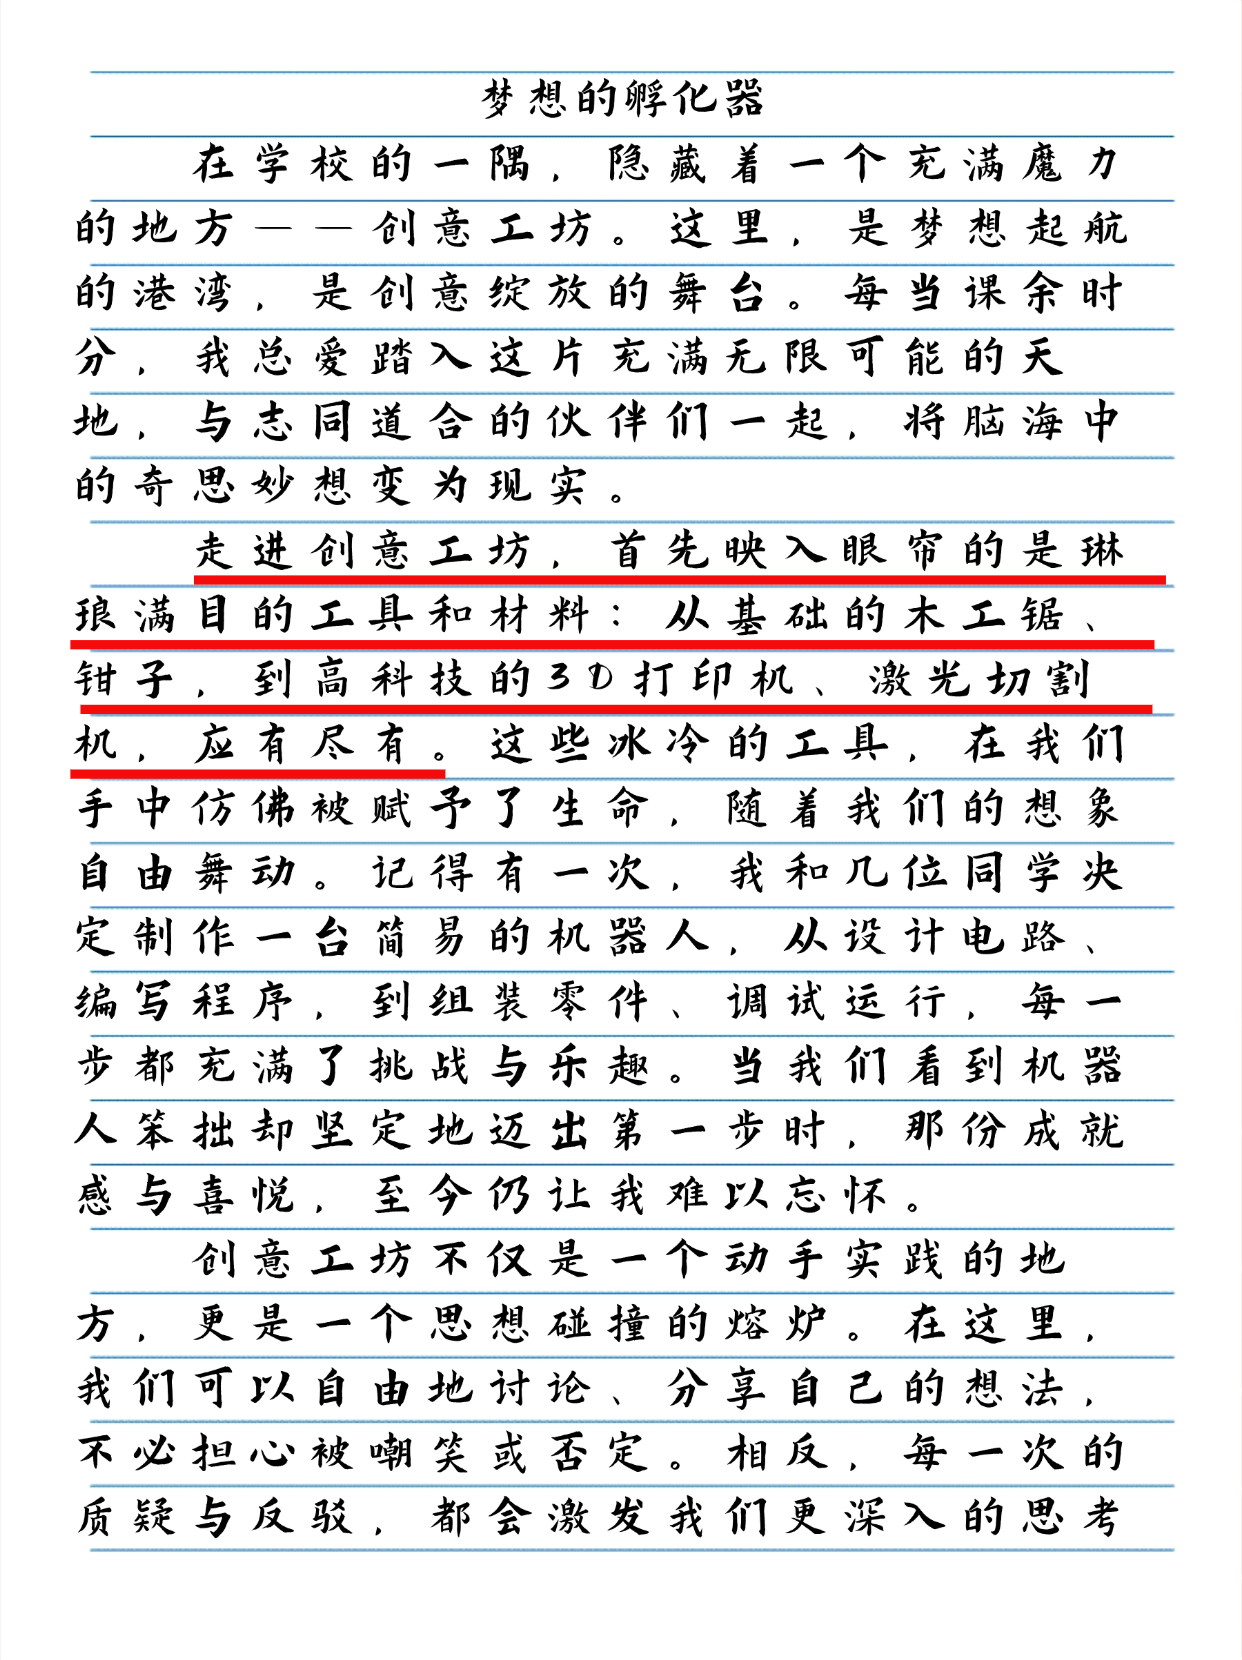 梦想的孵化器
在学校的一隅，隐藏着一个充满魔力
的地方——创意工坊。这里，是梦想起航
的港湾，是创意绽放的舞台。每当课余时
分，我总爱踏入这片充满无限可能的天
地，与志同道合的伙伴们一起，将脑海中
的奇思妙想变为现实。
走进创意工坊，首先映入眼帘的是琳
琅满目的工具和材料：从基础的木工锯、
钳子，到高科技的3D打印机、激光切割
机，应有尽有。这些冰冷的工具，在我们
手中仿佛被赋予了生命，随着我们的想象
自由舞动。记得有一次，我和几位同学决
定制作一台简易的机器人，从设计电路、
编写程序，到组装零件、调试运行，每一
步都充满了挑战与乐趣。当我们看到机器
人笨拙却坚定地迈出第一步时，那份成就
感与喜悦，至今仍让我难以忘怀。
创意工坊不仅是一个动手实践的地
方，更是一个思想碰撞的熔炉。在这里，
我们可以自由地讨论、分享自己的想法，
不必担心被嘲笑或否定。相反，每一次的
质疑与反驳，都会激发我们更深入的思考